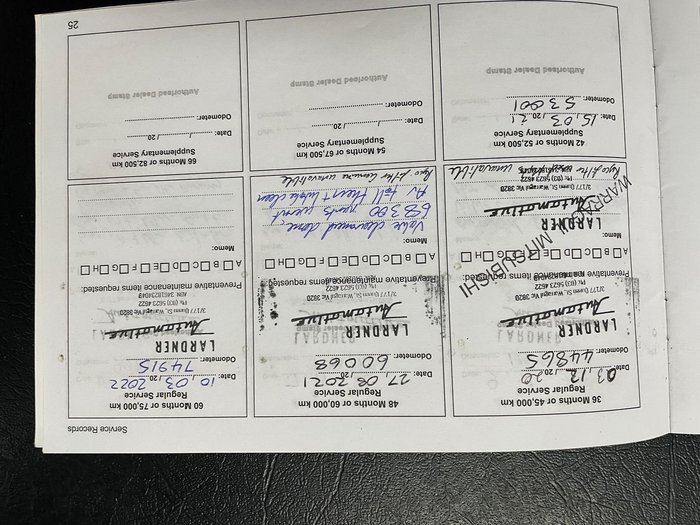 Service Records
36 Months or 45,000 km
Regular Service
Date: 03, 12, 20 20
Odometer: 44865
LARDNER
Automotive
3/177 Queen St, Warragul Vic 3820
Ph: (03) 5623 4622
WARRAGUL MITSUBISHI
Preventative maintenance items requested:
A B C D E F G H
Memo:
LARDNER
Automotive
3/177 Queen St, Warragul Vic 3820
Ph: (03) 5623 4622
Ryco filter unavailable
42 Months or 52,500 km
Supplementary Service
Date: 15, 03, 20 21
Odometer: 53001
48 Months or 60,000 km
Regular Service
Date: 27, 08, 2021
Odometer: 60068
LARDNER
Automotive
3/177 Queen St, Warragul Vic 3820
Ph: (03) 5623 4622
Preventative maintenance items requested:
A B C D E F G H
Memo:
Valve clearanced done,
68300 parts went
Ryco filter unavailable
54 Months or 67,500 km
Supplementary Service
Date: / /20
Odometer:
Authorised Dealer Stamp
60 Months or 75,000 km
Regular Service
Date: 10, 03, 2022
Odometer: 74915
LARDNER
Automotive
3/177 Queen St, Warragul Vic 3820
Ph: (03) 5623 4622
Preventative maintenance items requested:
A B C D E F G H
Memo:
66 Months or 82,500 km
Supplementary Service
Date: / /20
Odometer:
Authorised Dealer Stamp
25